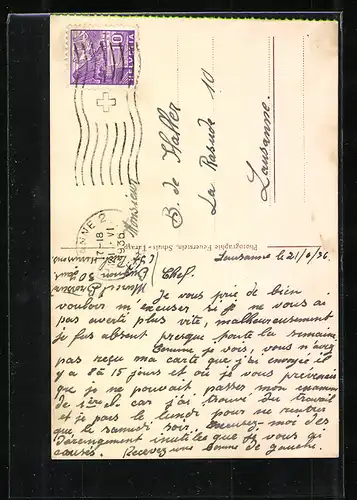 10
HELVETIA
Monsieur
B. de Haller
La Rasude 10
Lausanne.
Photographie Feuerstein, Schuls-Tarasp
Lausanne le 21/6/36
Chef.
Je vous prie de bien
vouloir m'excuser si je ne vous ai
pas averti plus vite, malheureusement
je fus absent presque toute la semaine
Comme je vois, vous n'avez
pas reçu ma carte que j'ai envoyé il
y a 8 à 15 jours et où je vous prévenais
que je ne pouvait passer mon examen
de 1ère cl. car j'ai trouvé du travail
et je pars le lundi pour ne rentrer
que le samedi soir. Excusez-moi des
dérangement inutiles que je vous ai
causés. Recevez une bonne de gauche.